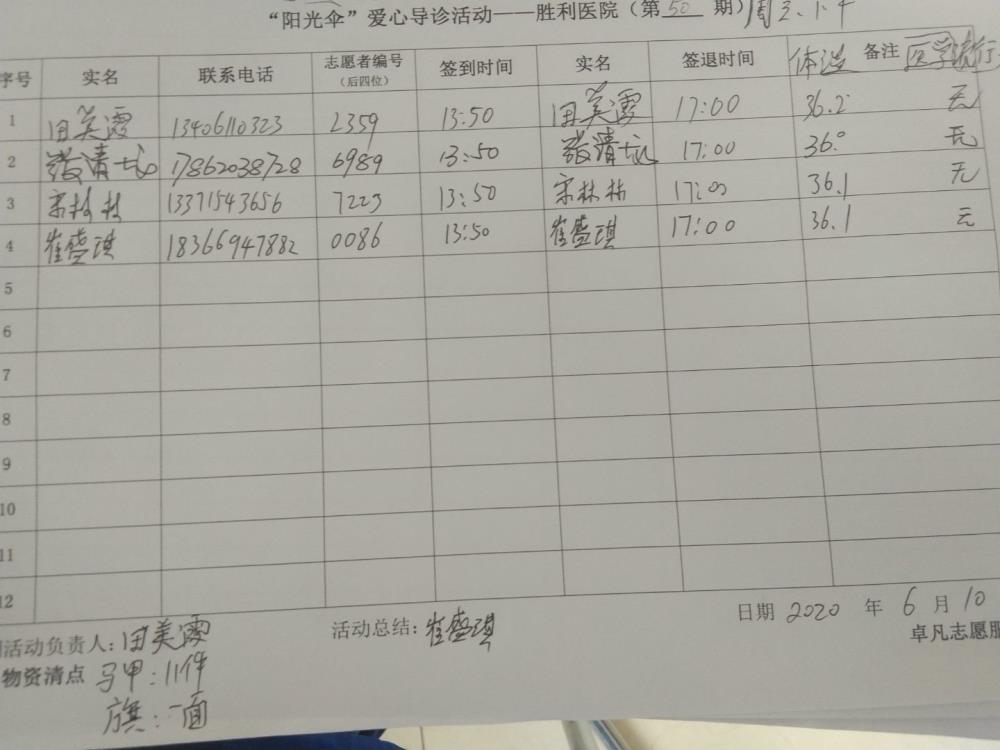 “阳光伞”爱心导诊活动——胜利医院（第 50 期）周三、下午
序号 实名 联系电话 志愿者编号（后四位） 签到时间 实名 签退时间 体温 备注 医学流行
1 田美霞 13406110323 2359 13:50 田美霞 17:00 36.2 无
2 17862038728 6989 13:50 17:00 36.° 无
3 宋林林 13371543656 7223 13:50 宋林林 17:00 36.1 无
4 崔盛琪 18366947882 0086 13:50 崔盛琪 17:00 36.1 无
5
6
7
8
9
10
11
12
日期 2020 年 6 月 10
活动负责人：田美霞 活动总结：崔盛琪
卓凡志愿服
物资清点 马甲：11件
旗：一面